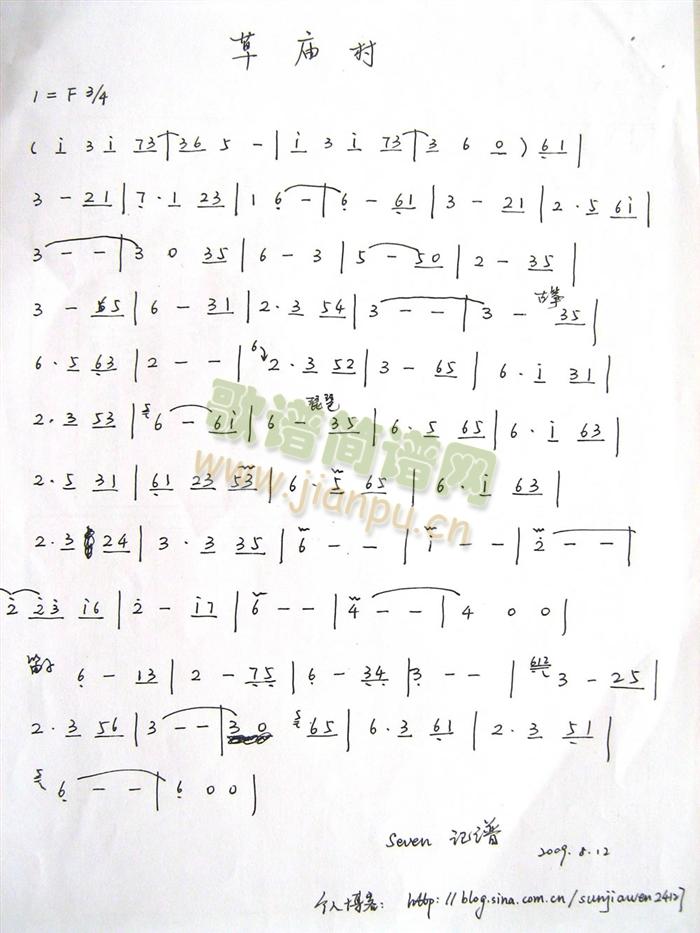 草庙村
1 = F 3/4
( i 3 i 73 | 36 5 - | i 3 i 73 | 3 6 0 ) 61 |
3 - 21 | 7 · 1 23 | 1 6 - | 6 - 61 | 3 - 21 | 2 · 5 6i |
3 - - | 3 0 35 | 6 - 3 | 5 - 50 | 2 - 35 |
3 - 65 | 6 - 31 | 2 · 3 54 | 3 - - | 3 - 古筝 35 |
6 · 5 63 | 2 - - | 6 2 · 3 52 | 3 - 65 | 6 · i 31 |
2 · 3 53 | 5 6 - 6i | 6 - 琵琶 35 | 6 · 5 65 | 6 · i 63 |
2 · 5 31 | 61 23 53 | 6 · 5 65 | 6 · i 63 |
2 · 3 24 | 3 · 3 35 | 6 - - | i - - | 2 - - |
2 23 i6 | 2 - i7 | 6 - - | 4 - - | 4 0 0 |
笛子 6 - 13 | 2 - 75 | 6 - 34 | 3 - - | 612 3 - 25 |
2 · 3 56 | 3 - - | 3 0 5 65 | 6 · 3 61 | 2 · 3 51 |
5 6 - - | 6 0 0 |
Seven 记谱 2009.8.12
个人博客: http://blog.sina.com.cn/sunjiawen2412
歌谱简谱网
www.jianpu.cn